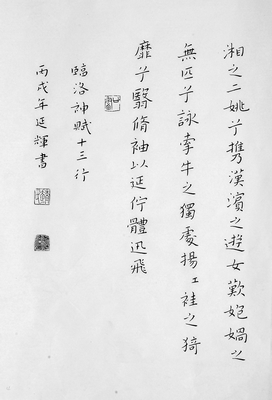 湘之二姚兮携漢濱之遊女歎匏媧之
無匹兮詠牽牛之獨處揚袿之猗
靡兮翳脩袖以延佇體迅飛
臨洛神賦十三行
丙戌年延輝書